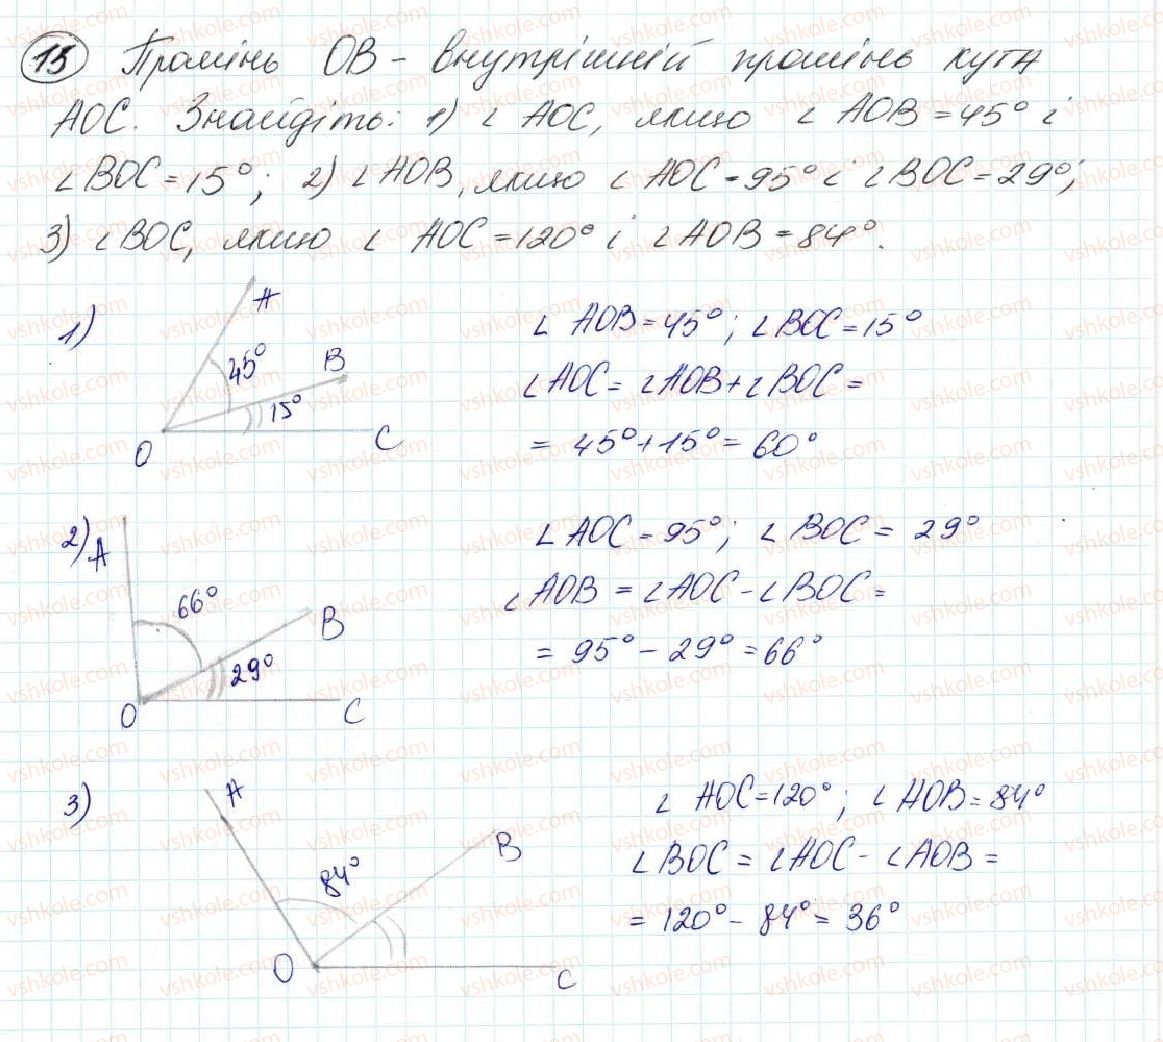 15 Промінь OB - внутрішній промінь кута
AOC. Знайдіть: 1) ∠ AOC, якщо ∠ AOB = 45° і
∠ BOC = 15°; 2) ∠ AOB, якщо ∠ AOC = 95° і ∠ BOC = 29°;
3) ∠ BOC, якщо ∠ AOC = 120° і ∠ AOB = 84°.
1)
A
45°
B
15°
O
C
∠ AOB = 45°; ∠ BOC = 15°
∠ AOC = ∠ AOB + ∠ BOC =
= 45° + 15° = 60°
2)
A
66°
B
29°
O
C
∠ AOC = 95°; ∠ BOC = 29°
∠ AOB = ∠ AOC - ∠ BOC =
= 95° - 29° = 66°
3)
A
84°
B
O
C
∠ AOC = 120°; ∠ AOB = 84°
∠ BOC = ∠ AOC - ∠ AOB =
= 120° - 84° = 36°
vshkole.com